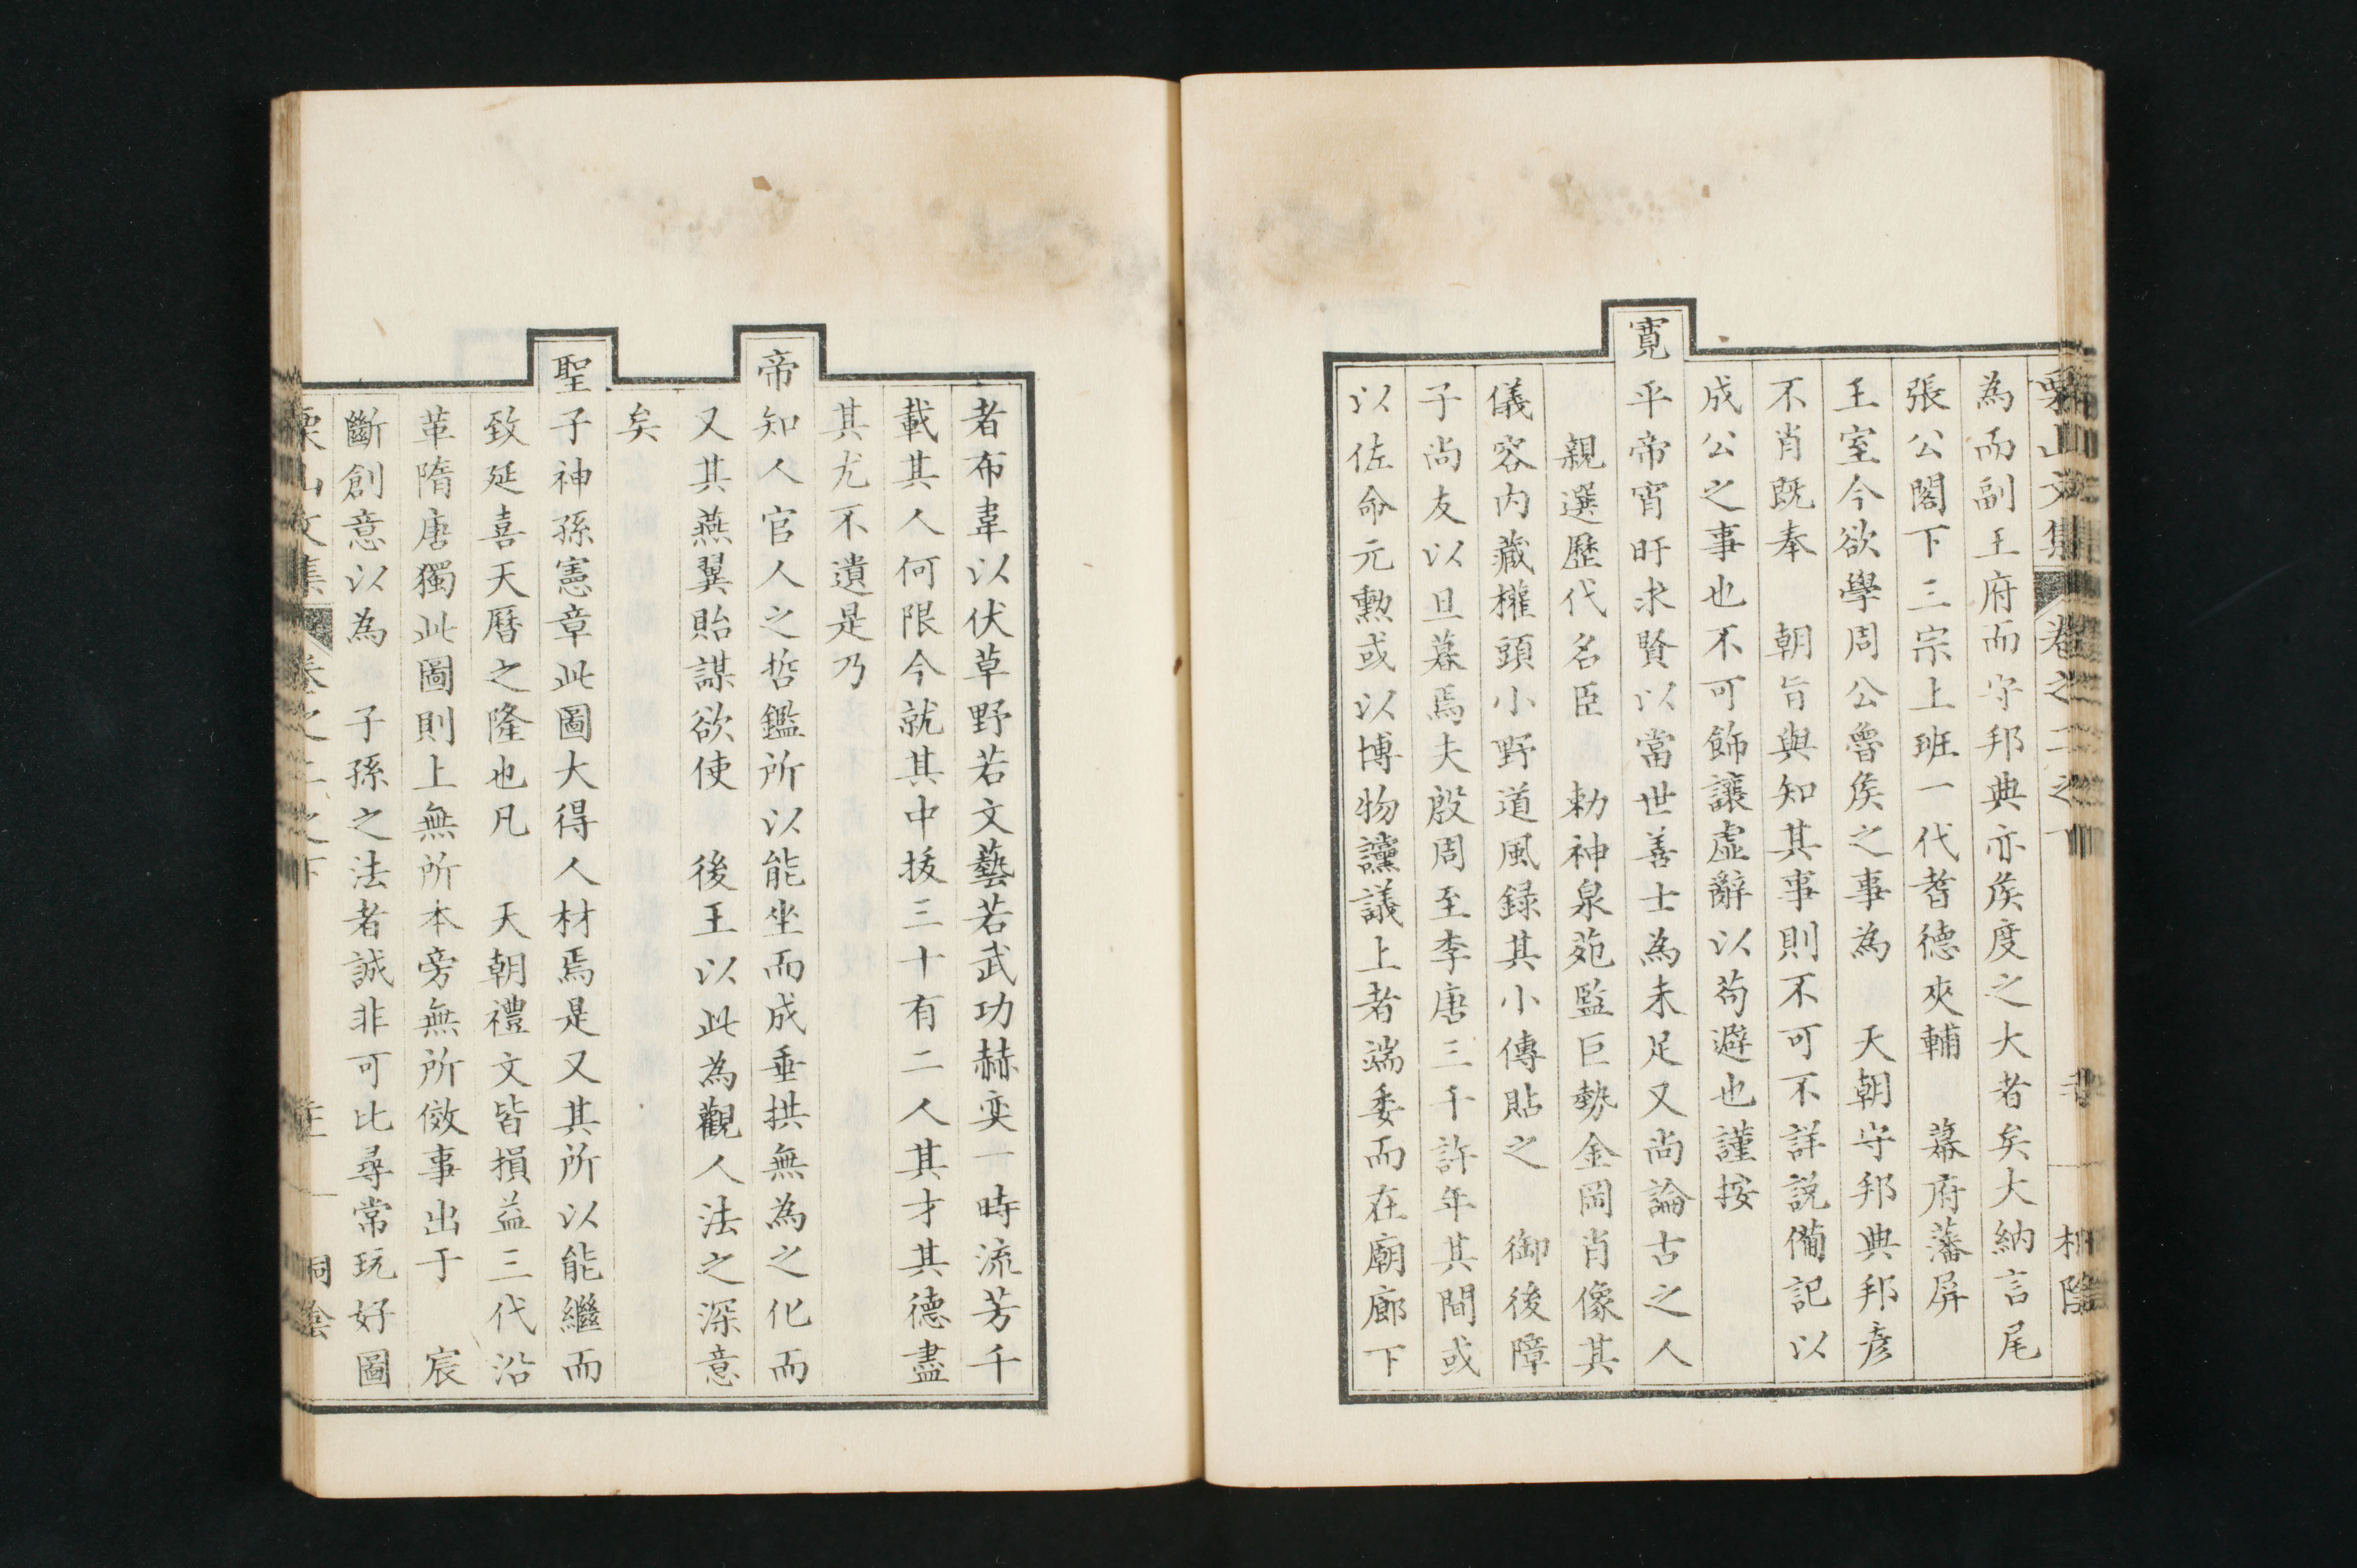 栗山文集 卷之二之下
為而副王府而守邦典亦矦度之大者矣大納言尾
張公閣下三宗上班一代耆徳夾輔　幕府藩屏
王室今欲學周公魯矦之事為　天朝守邦典邦彦
不肖既奉　朝旨與知其事則不可不詳説備記以
成公之事也不可飾讓虚辭以苟避也謹按
寛平帝宵旰求賢以當世善士為未足又尚論古之人
親選歴代名臣　勅神泉苑監巨勢金岡肖像其
儀容内藏權頭小野道風録其小傳貼之　御後障
子尚友以旦暮焉夫殷周至李唐三千許年其間或
以佐命元勲或以博物讜議上者端委而在廟廊下
者布韋以伏草野若文藝若武功赫奕一時流芳千
載其人何限今就其中拔三十有二人其才其德盡
其尤不遺是乃
帝知人官人之哲鑑所以能坐而成垂拱無為之化而
又其燕翼貽謀欲使　後王以此為觀人法之深意
矣
聖子神孫憲章此圖大得人材焉是又其所以能繼而
致延喜天曆之隆也凡　天朝禮文皆損益三代沿
革隋唐獨此圖則上無所本旁無所倣事出于　宸
斷創意以為　子孫之法者誠非可比尋常玩好圖
栗山文集 卷之二之下